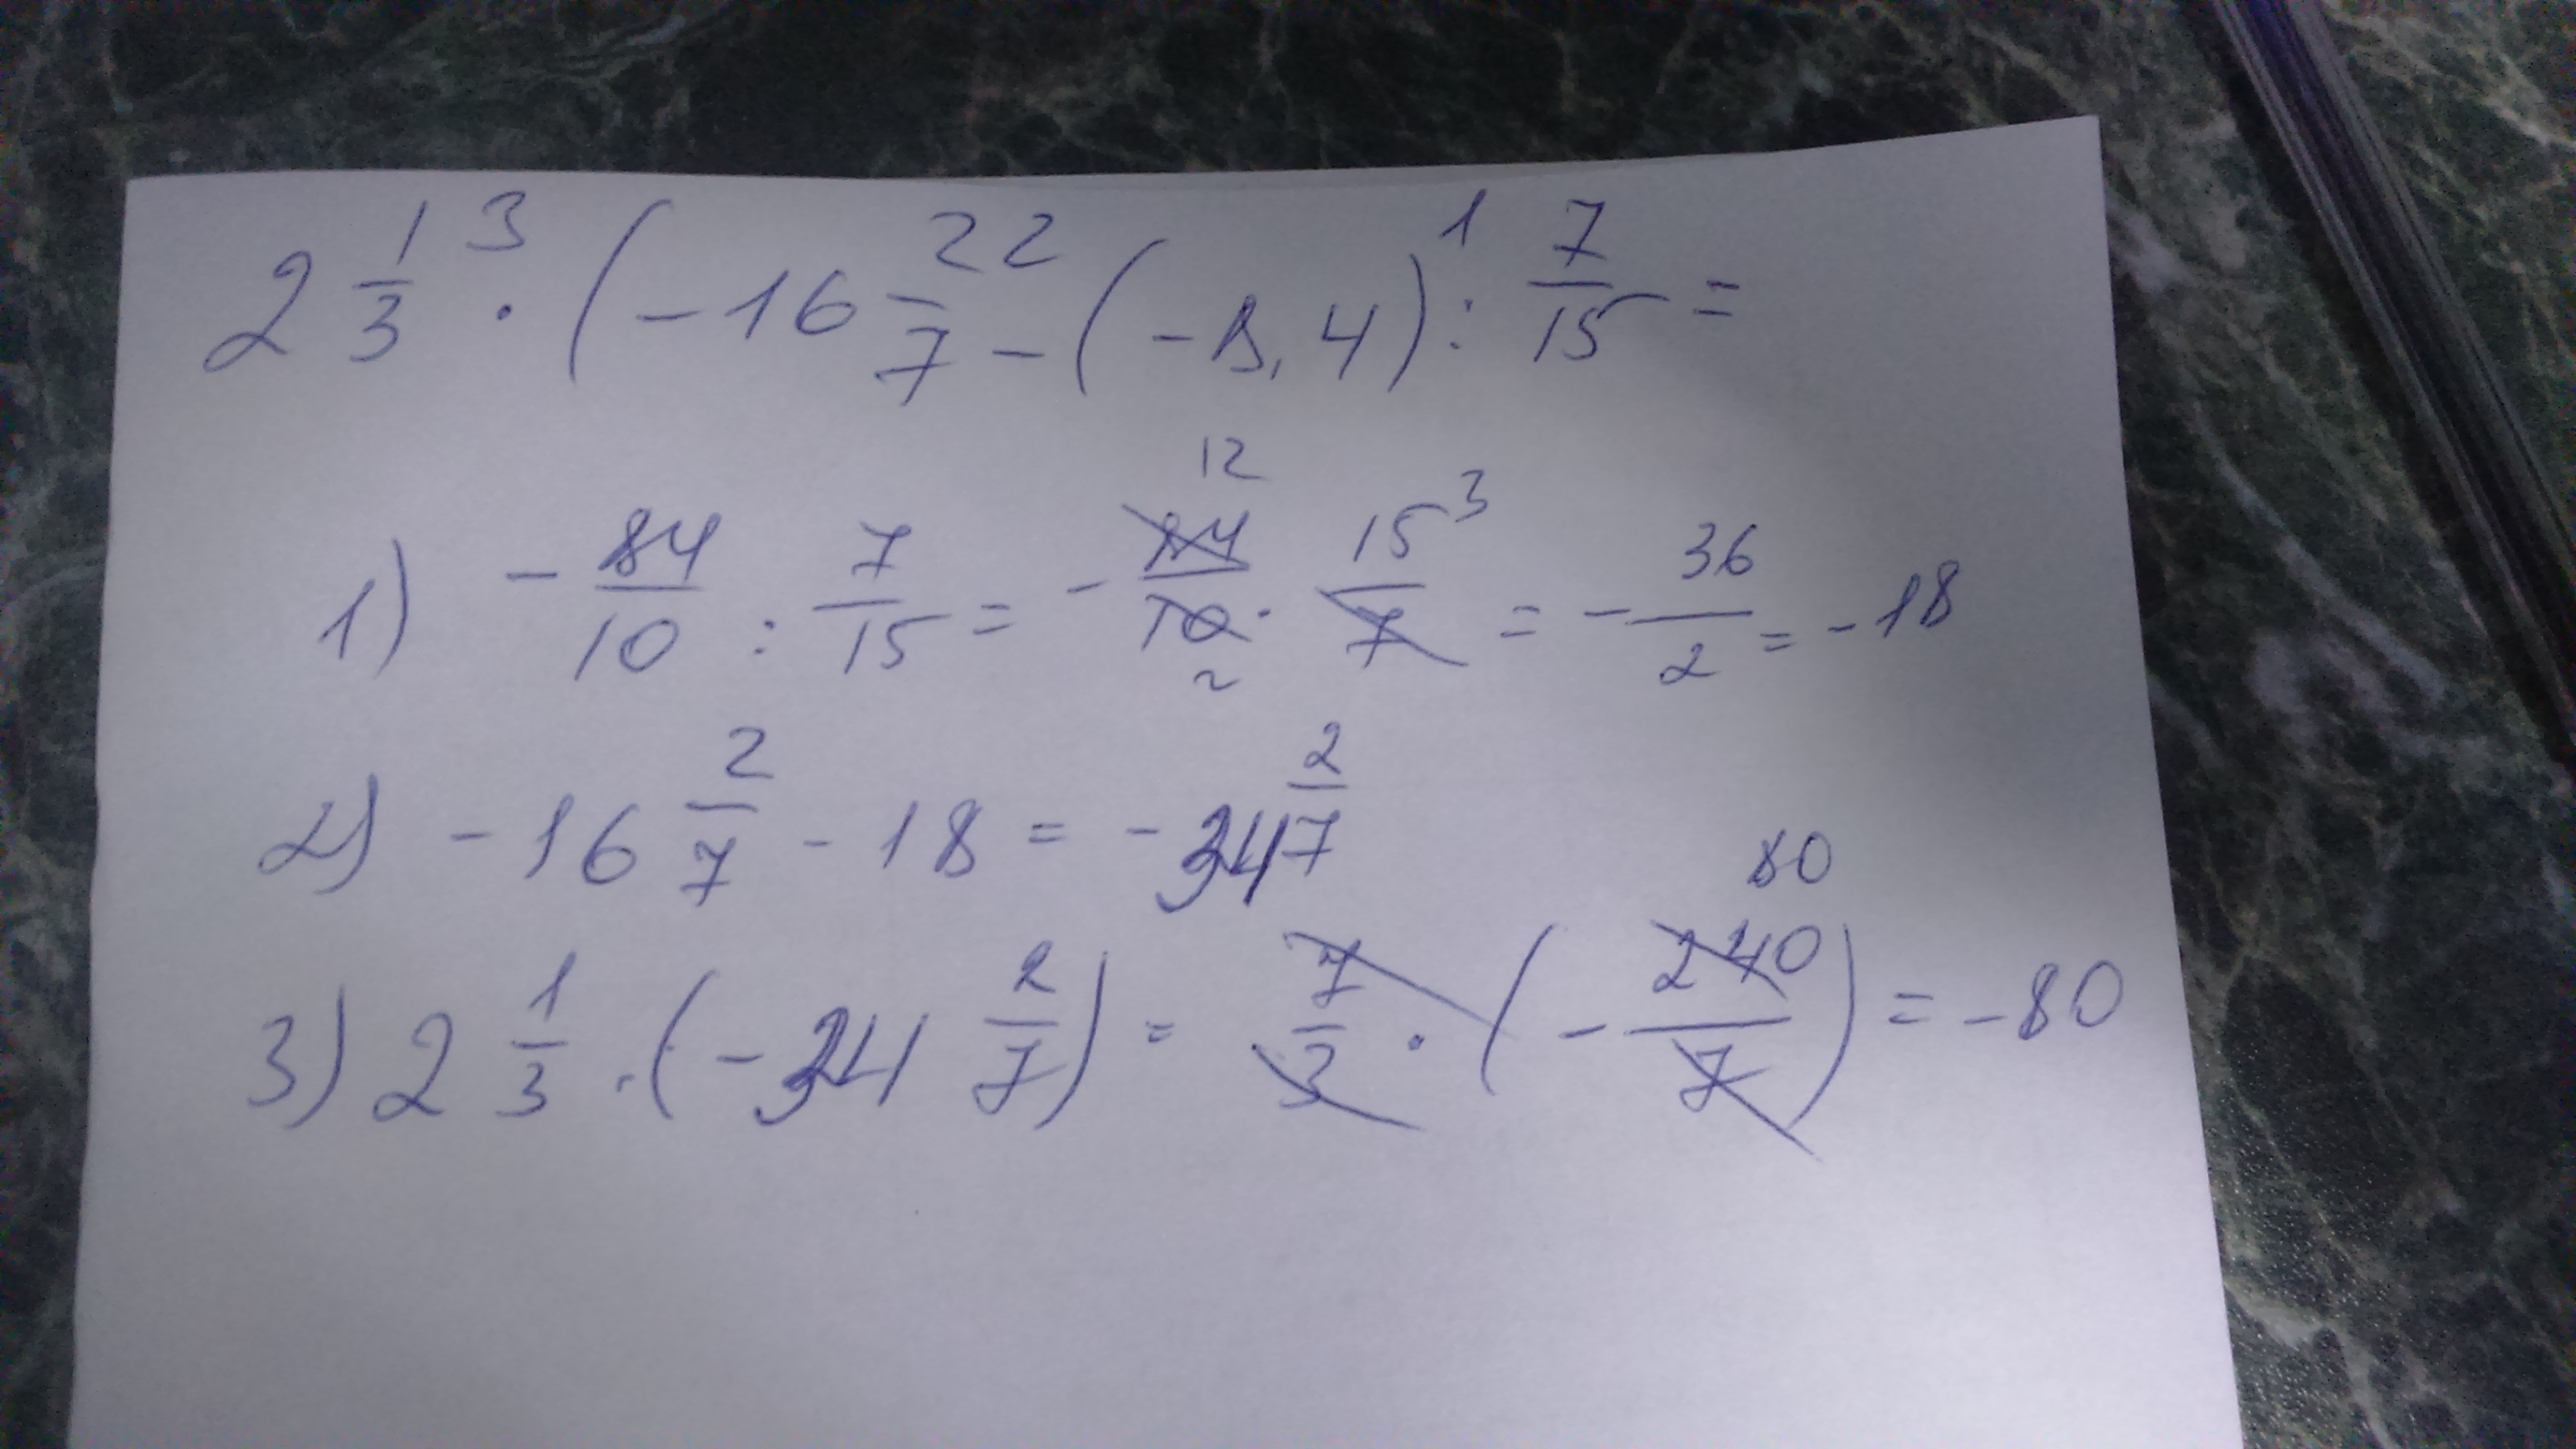 2 1/3 ³ · (-16 2/7 ² - (-8,4) ¹ : 7/15 =
1) - 84/10 : 7/15 = - 84/10 · 15/7 = - 36/2 = -18
12 3 2
2) -16 2/7 - 18 = -34 2/7
3) 2 1/3 · (-34 2/7) = 7/3 · (- 240/7) = -80
80